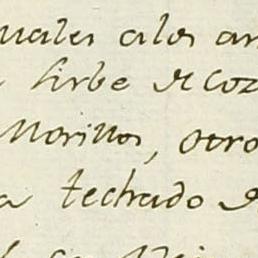 uales alos an
sirbe de Coz
Morillos, otro
a techado de